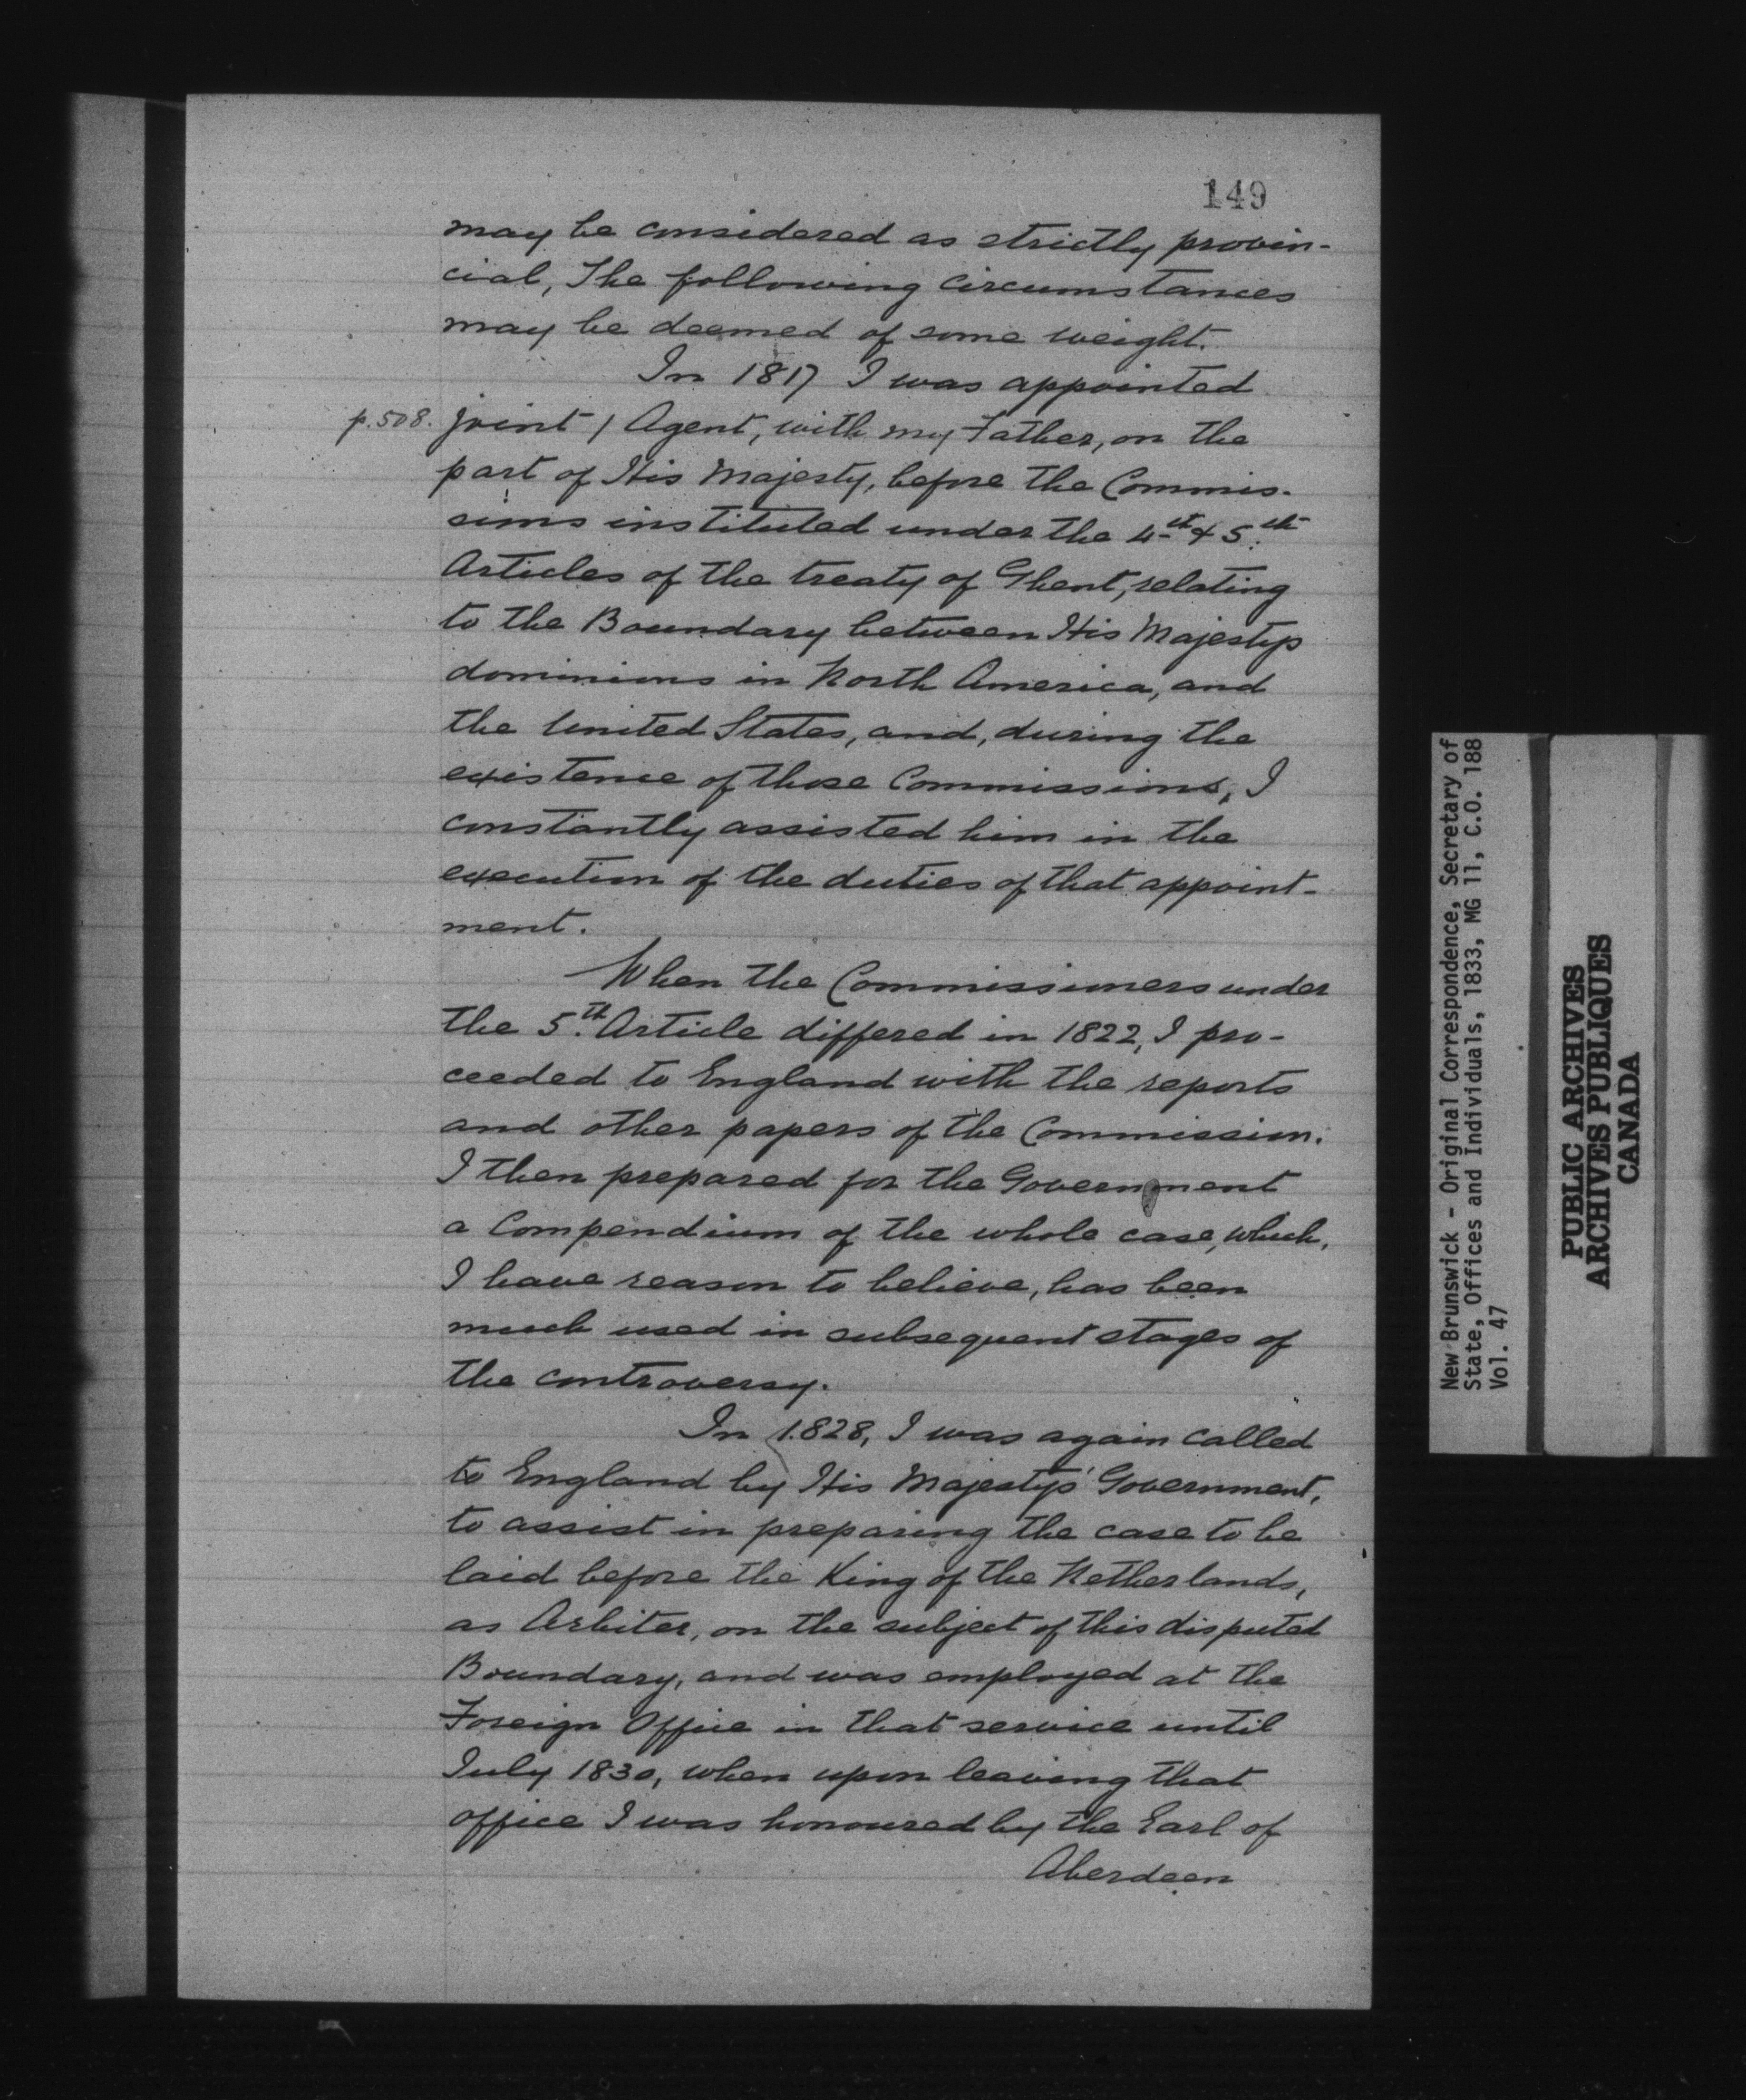 149
may be considered as strictly provin-
cial, The following circumstances
may be deemed of some weight.
In 1817 I was appointed
p.508. joint / Agent, with my Father, on the
part of His Majesty, before the Commis-
sions instituted under the 4th & 5th
Articles of the treaty of Ghent, relating
to the Boundary between His Majestys
dominions in North America, and
the United States, and, during the
existence of those Commissions, I
constantly assisted him in the
execution of the duties of that appoint-
ment.
When the Commissioners under
the 5th Article differed in 1822, I pro-
ceeded to England with the reports
and other papers of the Commission.
I then prepared for the Government
a Compendium of the whole case, which,
I have reason to believe, has been
much used in subsequent stages of
the controversy.
In 1828, I was again called
to England by His Majesty's Government,
to assist in preparing the case to be
laid before the King of the Netherlands,
as Arbiter, on the subject of this disputed
Boundary, and was employed at the
Foreign Office in that service until
July 1830, when upon leaving that
office I was honoured by the Earl of
Aberdeen
New Brunswick - Original Correspondence, Secretary of
State, Offices and Individuals, 1833, MG 11, C.O. 188
Vol. 47
PUBLIC ARCHIVES
ARCHIVES PUBLIQUES
CANADA